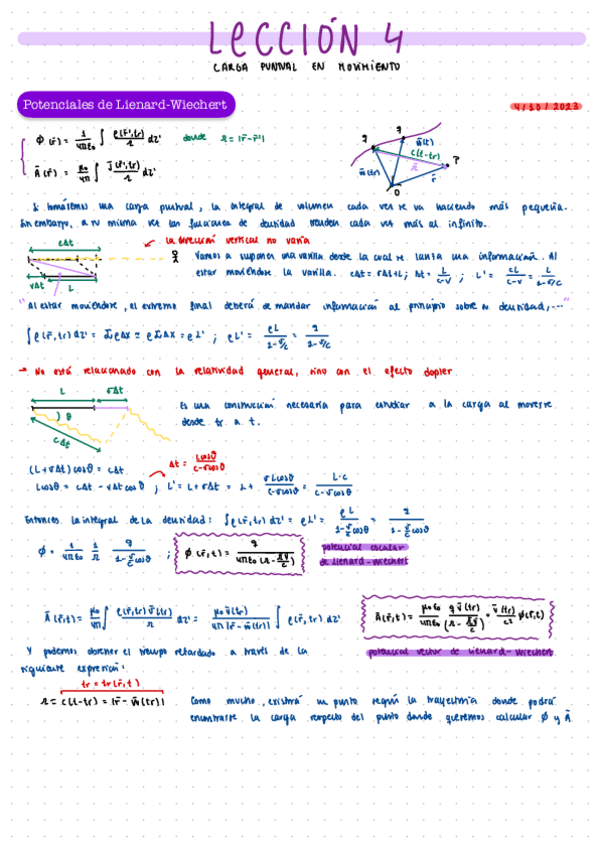 LECCIÓN 4
CARGA PUNTUAL EN MOVIMIENTO
Potenciales de Lienard-Wiechert
4/10/2023
ϕ(r̄) = 1/4πε₀ ∫ ρ(r̄',tr)/r dτ' donde r = |r̄-r̄'|
Ā(r̄) = μ₀/4π ∫ J̄(r̄',tr)/r dτ'
q q w̄(t) c(t-tr) P w̄(tr) r̄ r̄ O
Si tomásemos una carga puntual, la integral de volumen cada vez se va haciendo más pequeña.
Sin embargo, a su misma vez las funciones de densidad tienden cada vez más al infinito.
cΔt
← la dirección vertical no varía
Vamos a suponer una varilla desde la cual se lanza una información. Al
estar moviéndose la varilla. cΔt = vΔt+L; Δt = L/c-v ; L' = cL/c-v = L/1-v/c
vΔt L
"Al estar moviéndose, el extremo final deberá de mandar información al principio sobre su densidad,..."
∫ρ(r̄,tr) dτ' = ΣρΔX ≃ ρΣΔX = ρL' ; ρL' = ρL/1-v/c = q/1-v/c
→ No está relacionado con la relatividad general, sino con el efecto dopler
L vΔt
θ
cΔt
Es una construcción necesaria para estudiar a la carga al moverse
desde tr a t.
Δt = Lcosθ/c-vcosθ
(L+vΔt)cosθ = cΔt
Lcosθ = cΔt - vΔtcosθ ; L' = L+vΔt = L + vLcosθ/c-vcosθ = L·c/c-vcosθ
Entonces la integral de la densidad: ∫ρ(r̄,tr) dτ' = ρL' = ρL/1-v/c cosθ = q/1-v/c cosθ
ϕ = 1/4πε₀ 1/r q/1-v/c cosθ ; ϕ(r̄,t) = q/4πε₀(r - r̄v̄/c) potencial escalar
de Lienard-Wiechert
Ā(r̄,t) = μ₀/4π ∫ ρ(r̄,tr) v̄(tr)/r dτ' = μ₀v̄(tr)/4π|r̄-w̄(tr)| ∫ρ(r̄,tr) dτ' Ā(r̄,t) = μ₀ε₀/4πε₀ q v̄(tr)/(r - r̄v̄/c) = v̄(tr)/c² ϕ(r̄,t)
Y podemos obtener el tiempo retardado a través de la potencial vector de Lienard-Wiechert
siguiente expresión:
tr = tr(r̄,t)
r = c(t-tr) = |r̄-w̄(tr)| Como mucho, existirá un punto según la trayectoria donde podrá
encontrarse la carga respecto del punto donde queremos calcular ϕ y Ā